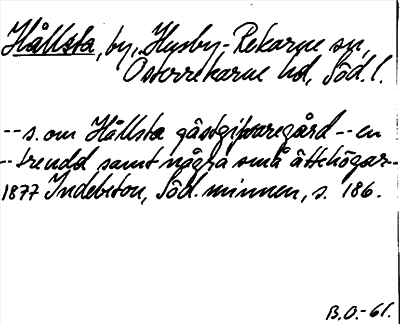 Hållsta, by, Husby-Rekarne sn,
Österrekarne hd, Söd. l.
-- s. om Hållsta gästgifvaregård -- en
-- trendd samt några små ättehögar --
1877 Indebetou, Söd. minnen, s. 186.
B.O.-61.